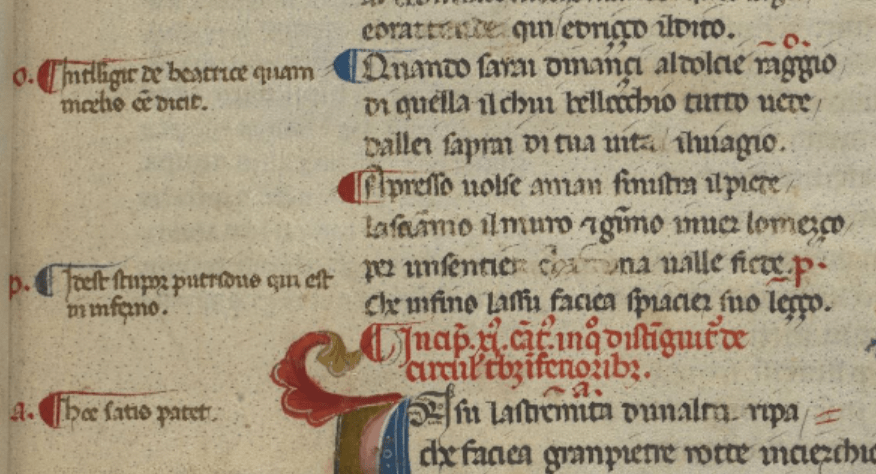 eorattende qui / edriçço ildito.
o. Intelligit de beatrice quam
in celis ee dicit.
Quando sarai dinançi al dolcie raggio o.
di quella il chui bellocchio tutto uede /
dallei saprai di tua uita ilviagio.
Apresso uolse aman sinistra ilpiede /
lasciamo il muro ⁊ gimo inuer lomeçço
per unsentier una ualle fiede. p.
che infino lassu faciea spiacier suo leçço.
p. Idest stupor putridus qui est
in inferno.
Incip. xj. cat. in q̊ distinguit de
circul tbz iferioribz.
a. hoc satis patet.
a.
In su lastremita dunalta ripa
che faciea gran pietre rotte incierchio